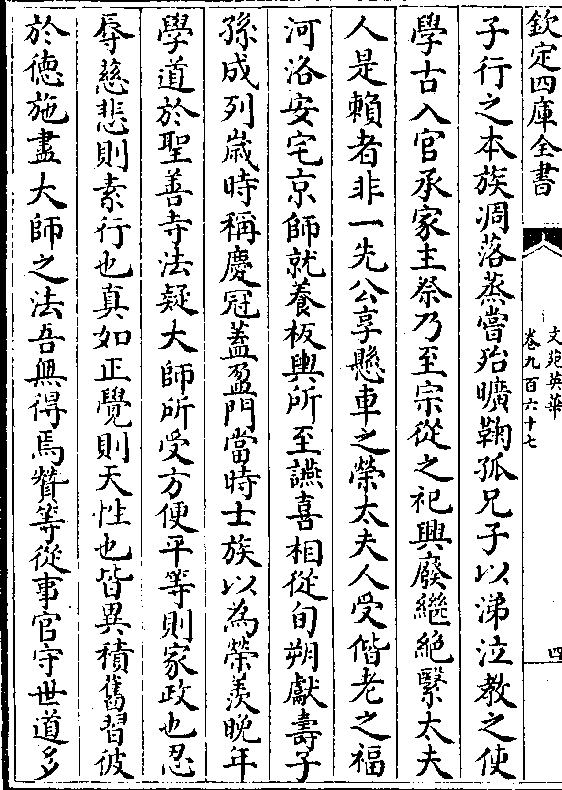 欽定四庫全書
文苑英華
卷九百六十七
四
子行之本族凋落蒸嘗殆曠鞠孤兄子以涕泣教之使
學古入官承家主祭乃至宗從之祀興廢繼絶繄太夫
人是賴者非一先公享懸車之榮太夫人受偕老之福
河洛安宅京師就養板輿所至讌喜相從旬朔獻壽子
孫成列歲時稱慶冠蓋盈門當時士族以為榮羨晚年
學道於聖善寺法疑大師所受方便平等則家政也忍
辱慈悲則素行也真如正覺則天性也皆異積舊習彼
於德施盡大師之法吾無得焉贊等從事官守世道多